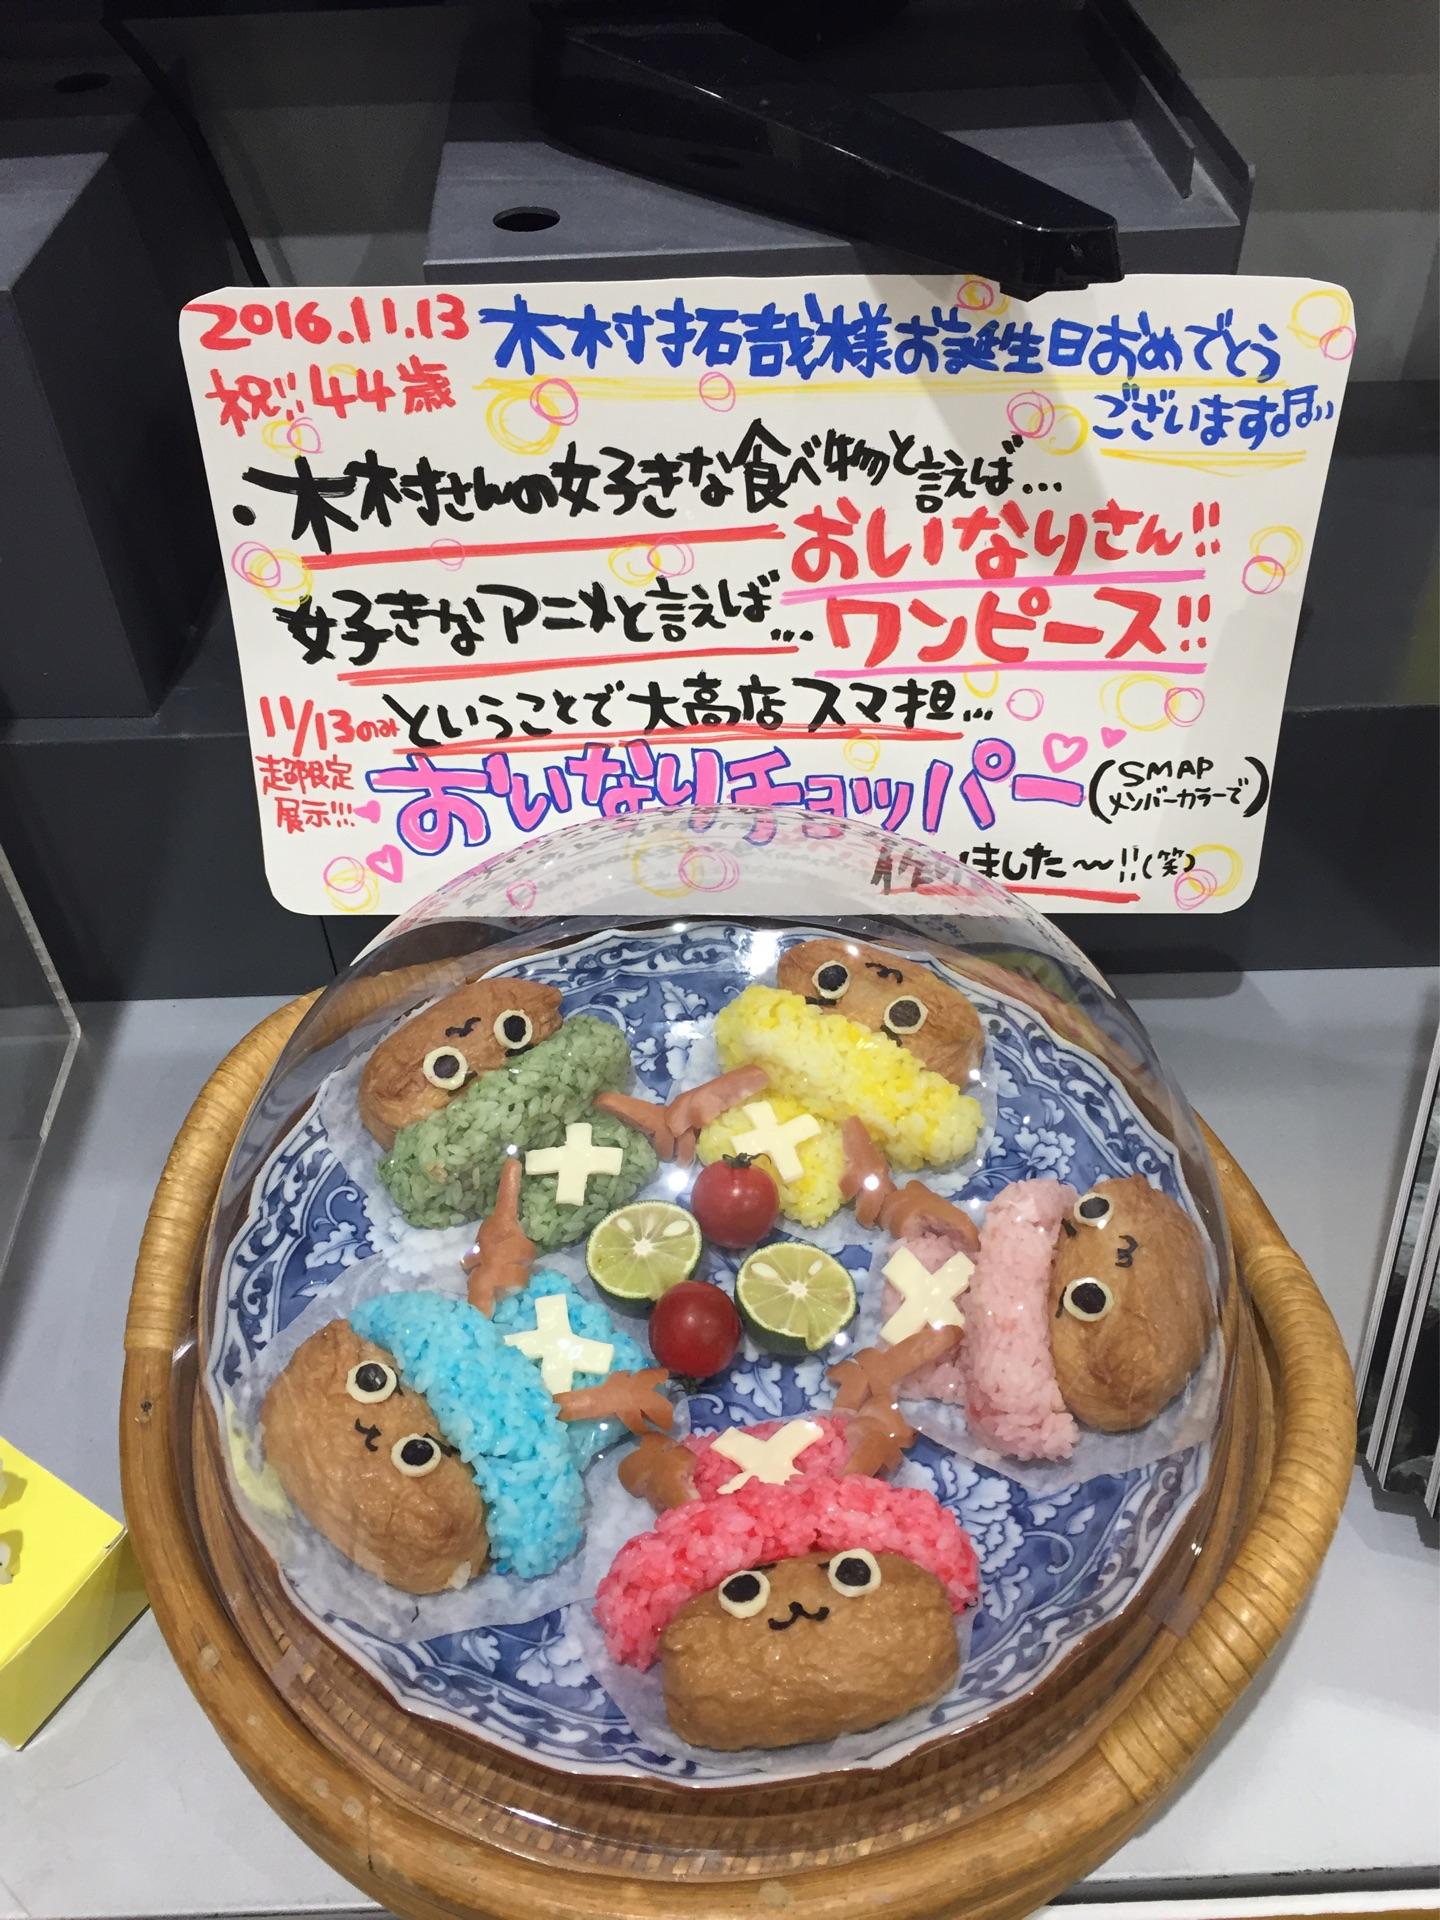 2016.11.13
祝!!44歳
木村拓哉様お誕生日おめでとう
ございますm(__)m
・木村さんの好きな食べ物と言えば…
おいなりさん!!
好きなアニメと言えば…
ワンピース!!
ということで大高店スマ担…
11/13のみ
超限定
展示!!!
おいなりチョッパー
(SMAP
メンバーカラーで)
作りました〜!!(笑)